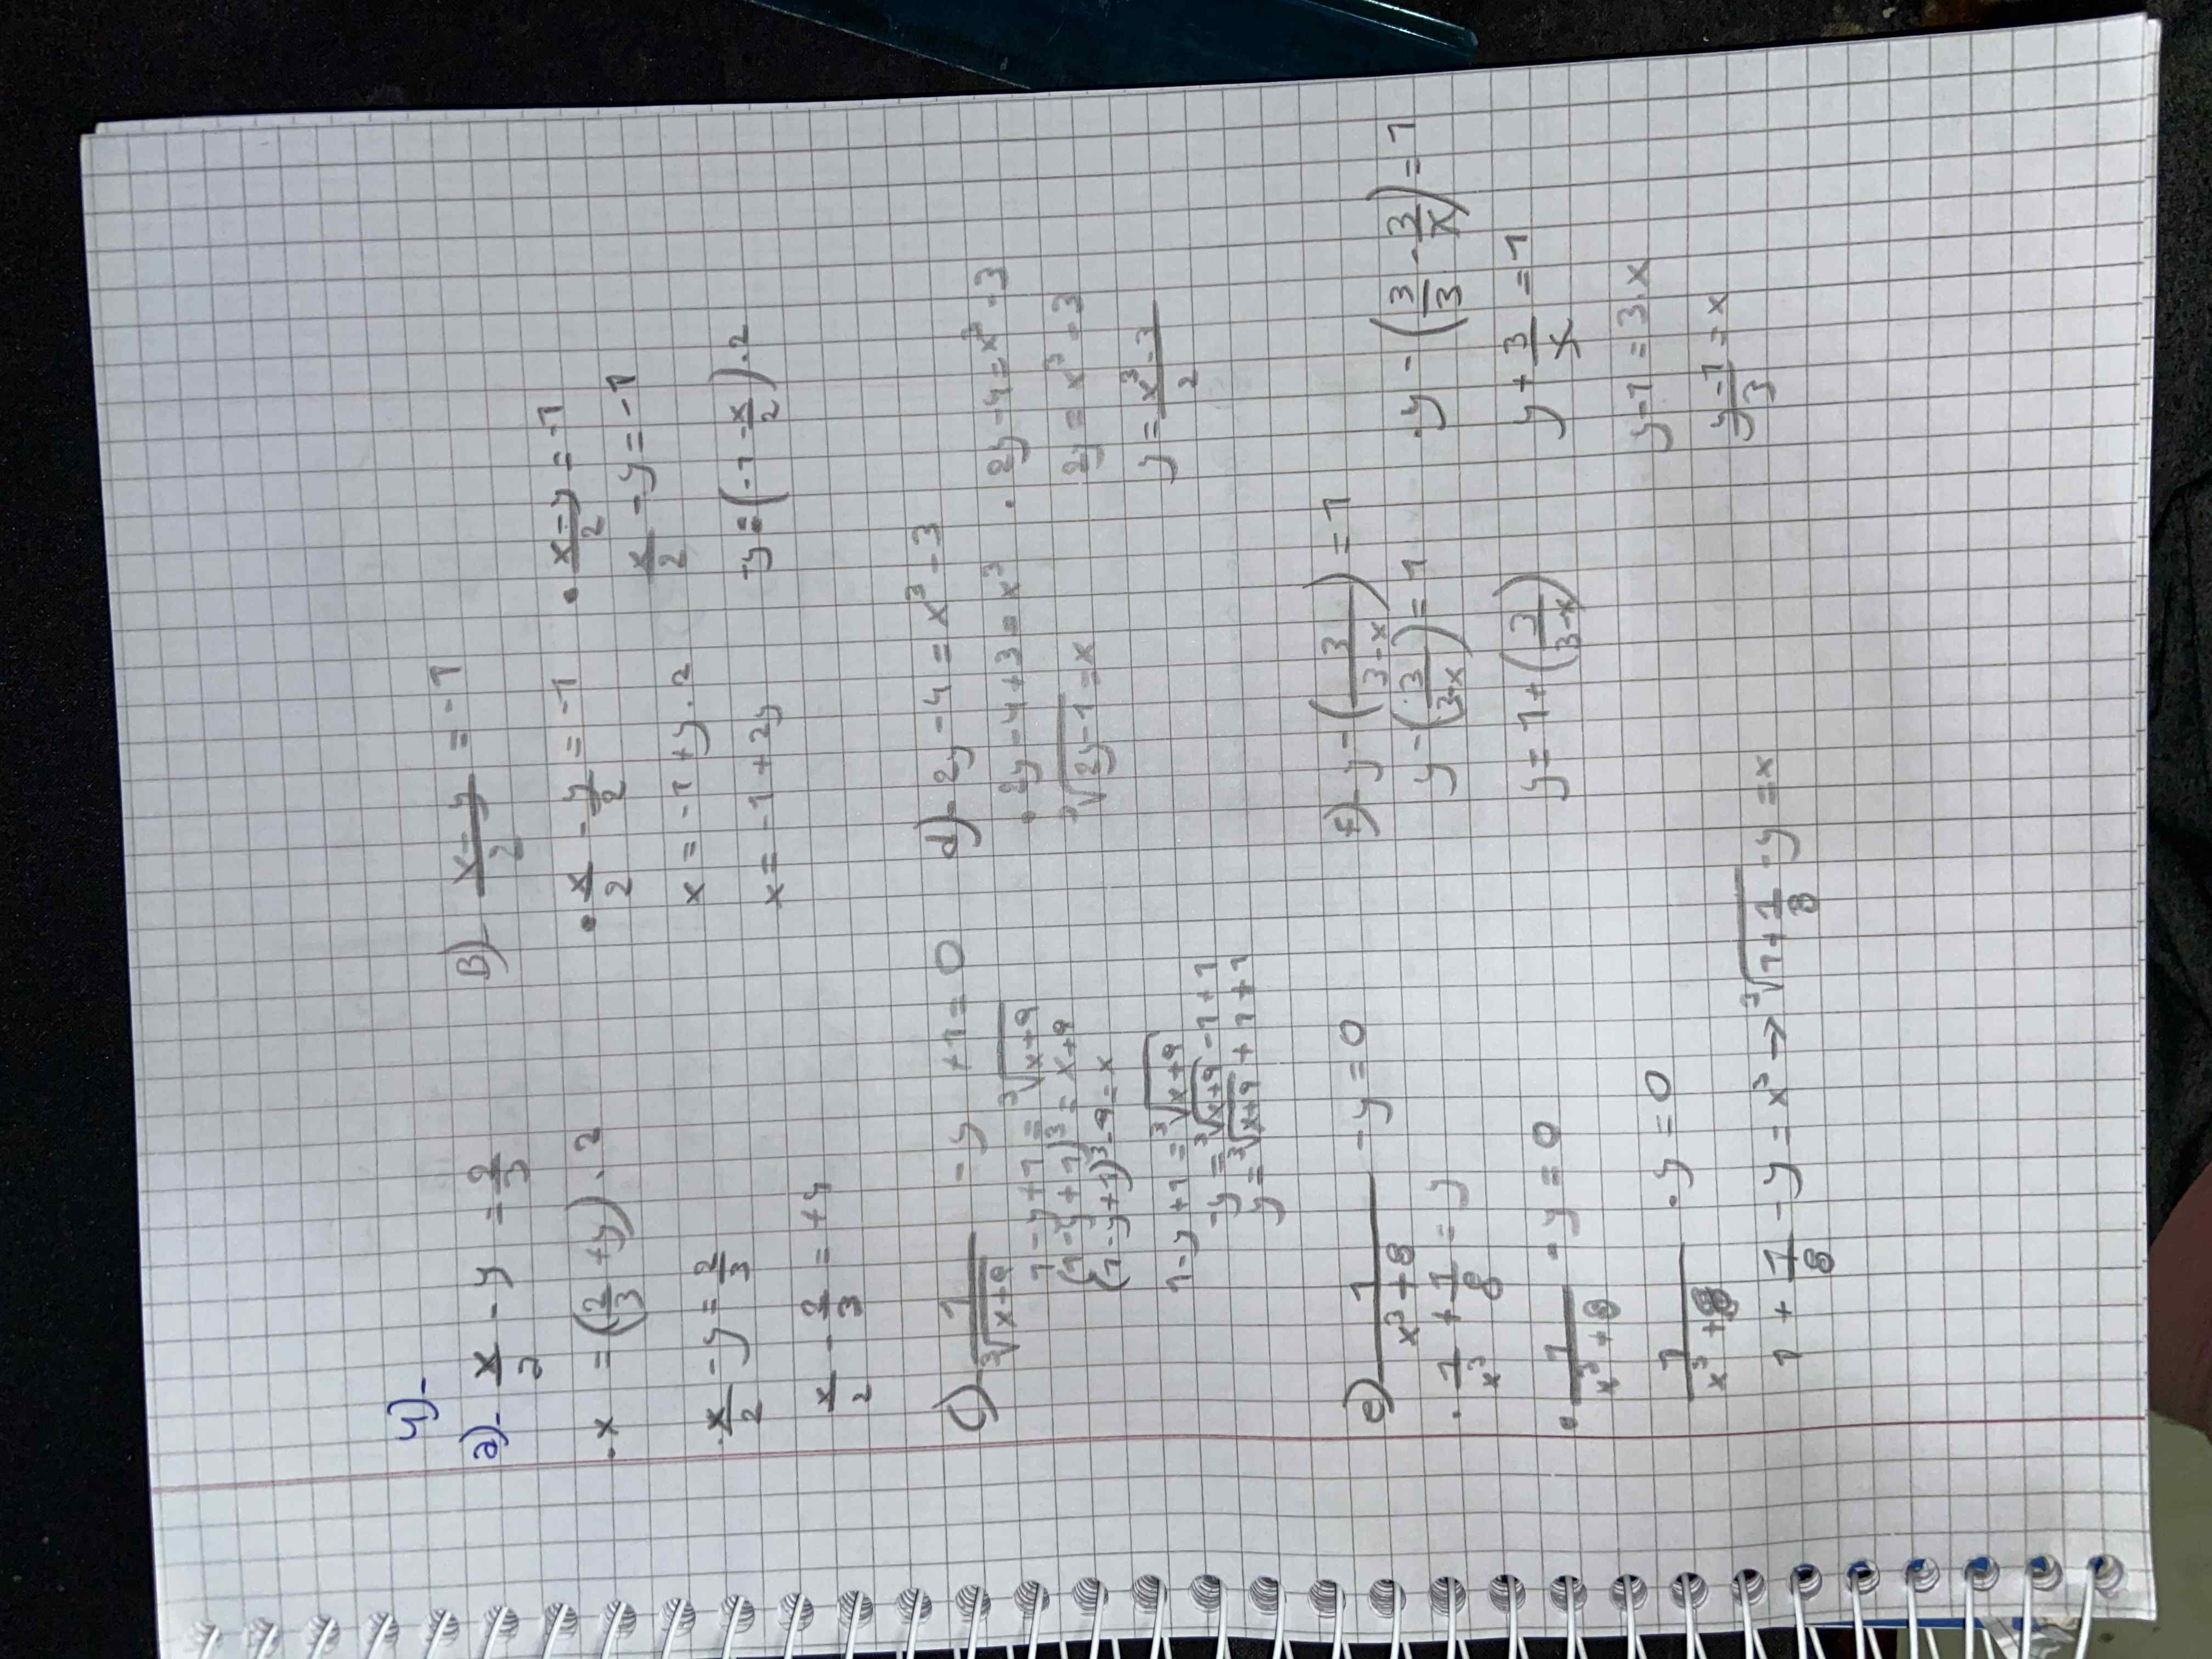 4)-
a)- x/2 - y = 2/3
· x = (2/3 + y) . 2
· x/2 - y = 2/3
x/2 - 2/3 = + y
B)- x-y/2 = -1
· x/2 - y/2 = -1
x = -1 + y . 2
x = -1 + 2y
· x-y/2 = -1
x/2 - y = -1
-y = (-1 - x/2) . 2
c)- 1/∛x+9 - y + 1 = 0
1 - y + 1 = ∛x+9
(1 - y + 1)³ = x + 9
(1 - y + 1)³ - 9 = x
1 - y + 1 = ∛x+9
-y = ∛x+9 - 1 + 1
y = ∛x+9 + 1 + 1
d)- 2y - 4 = x³ - 3
· 2y - 4 + 3 = x³
∛2y - 1 = x
· 2y - 4 = x³ - 3
2y = x³ - 3
y = x³ - 3/2
e) 1/x³ + 8 - y = 0
· 1/x³ + 1/8 = y
· 1/x³ + 8 - y = 0
1/x³ + 8 - y = 0
1 + 1/8 - y = x³ → ∛1 + 1/8 - y = x
f)- y - (3/3-x) = 1
y - (3/3-x) = 1
y = 1 + (3/3-x)
· y - (3/3 - 3/x) = 1
y + 3/x = 1
y - 1 = 3 . x
y - 1/3 = x